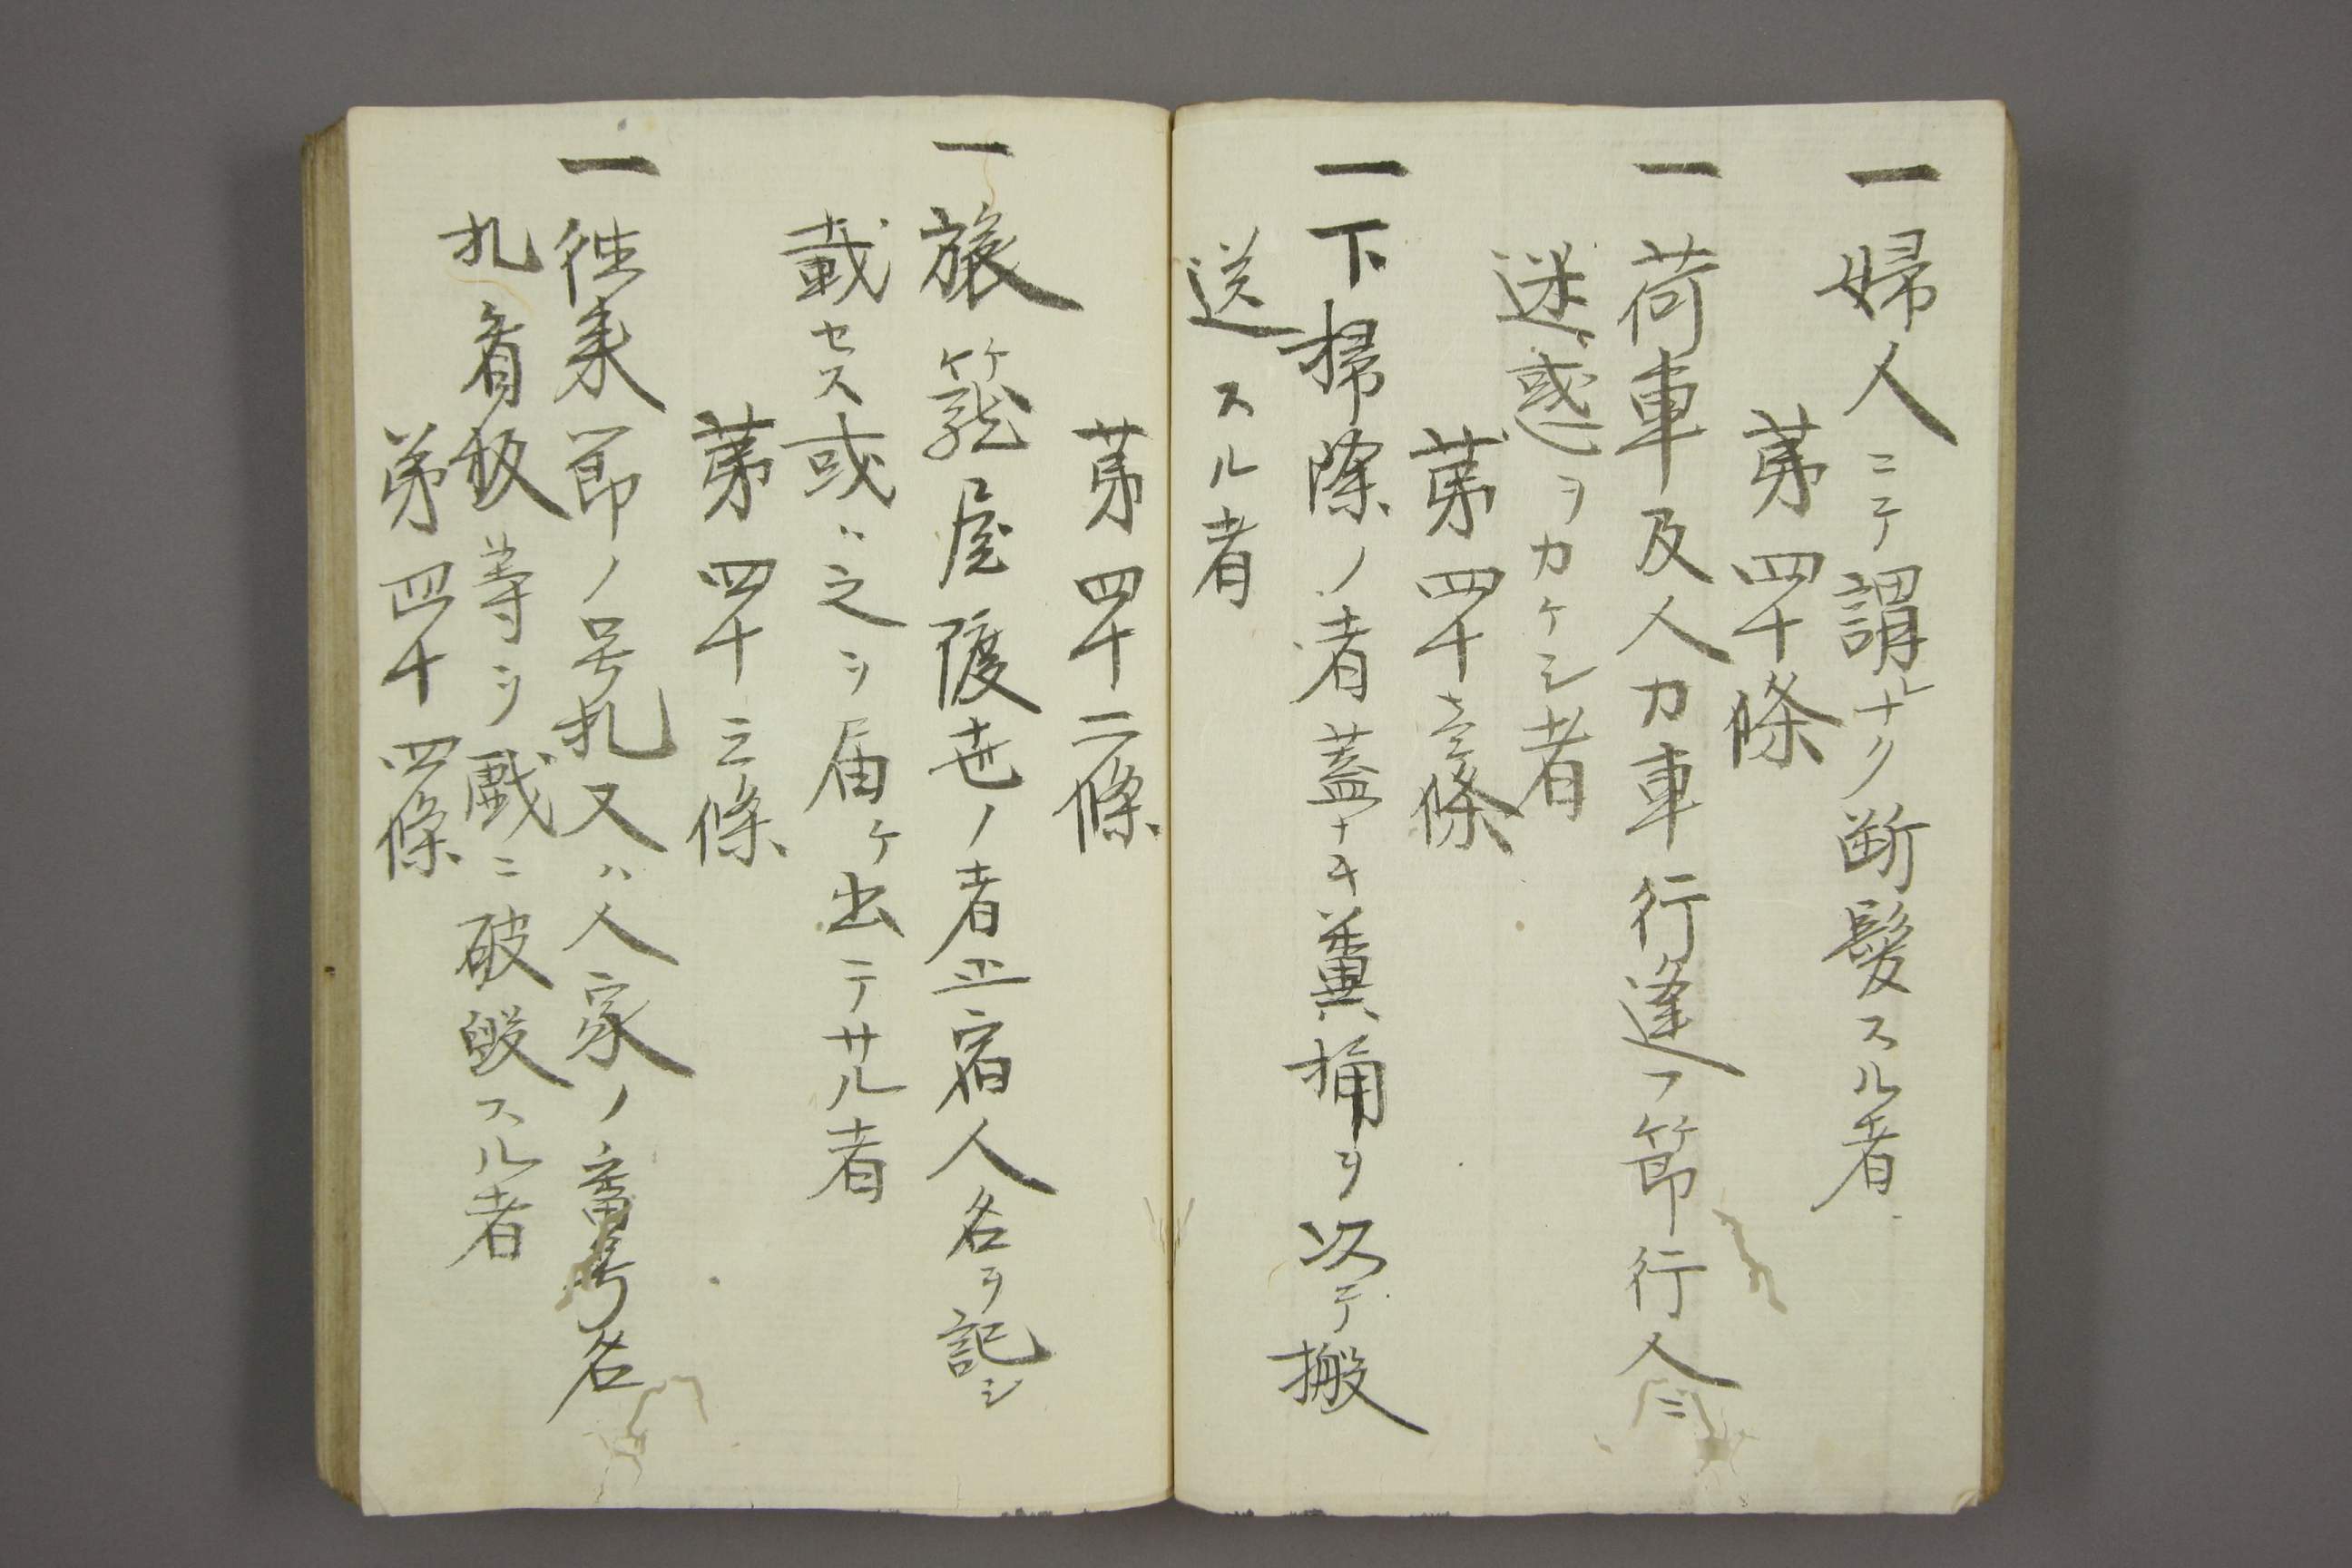 一婦人ニテ謂レナク断髪スル者
第四十條
一荷車及人力車行逢フ節行人ニ
迷惑ヲカケシ者
第四十壱條
一下掃除ノ者蓋ナキ糞桶ヲ以テ搬
送スル者
第四十二條
一旅籠屋渡世ノ者止宿人名ヲ記シ
載セス或ハ之ヲ届ケ出テサル者
第四十三條
一往来節ノ号札又ハ人家ノ番号名
札看板等ヲ戯ニ破毀スル者
第四十四條